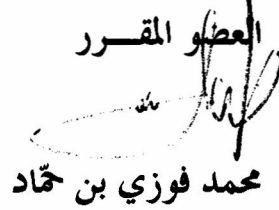 العضو المقـــرر
محمد فوزي بن حمّاد